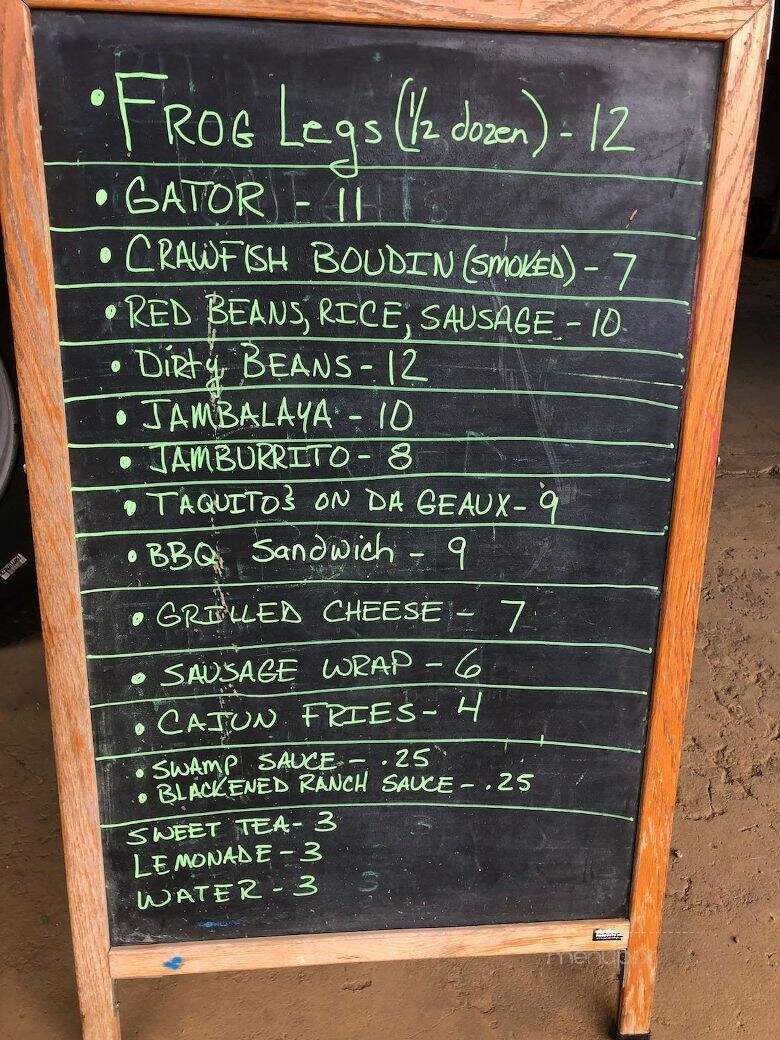 • FROG Legs (1/2 dozen) - 12
• GATOR - 11
• CRAWFISH BOUDIN (SMOKED) - 7
• RED BEANS, RICE, SAUSAGE - 10
• Dirty BEANS - 12
• JAMBALAYA - 10
• JAMBURRITO - 8
• TAQUITOS ON DA GEAUX - 9
• BBQ Sandwich - 9
• GRILLED CHEESE - 7
• SAUSAGE WRAP - 6
• CAJUN FRIES - 4
• SWAMP SAUCE - .25
• BLACKENED RANCH SAUCE - .25
SWEET TEA - 3
LEMONADE - 3
WATER - 3